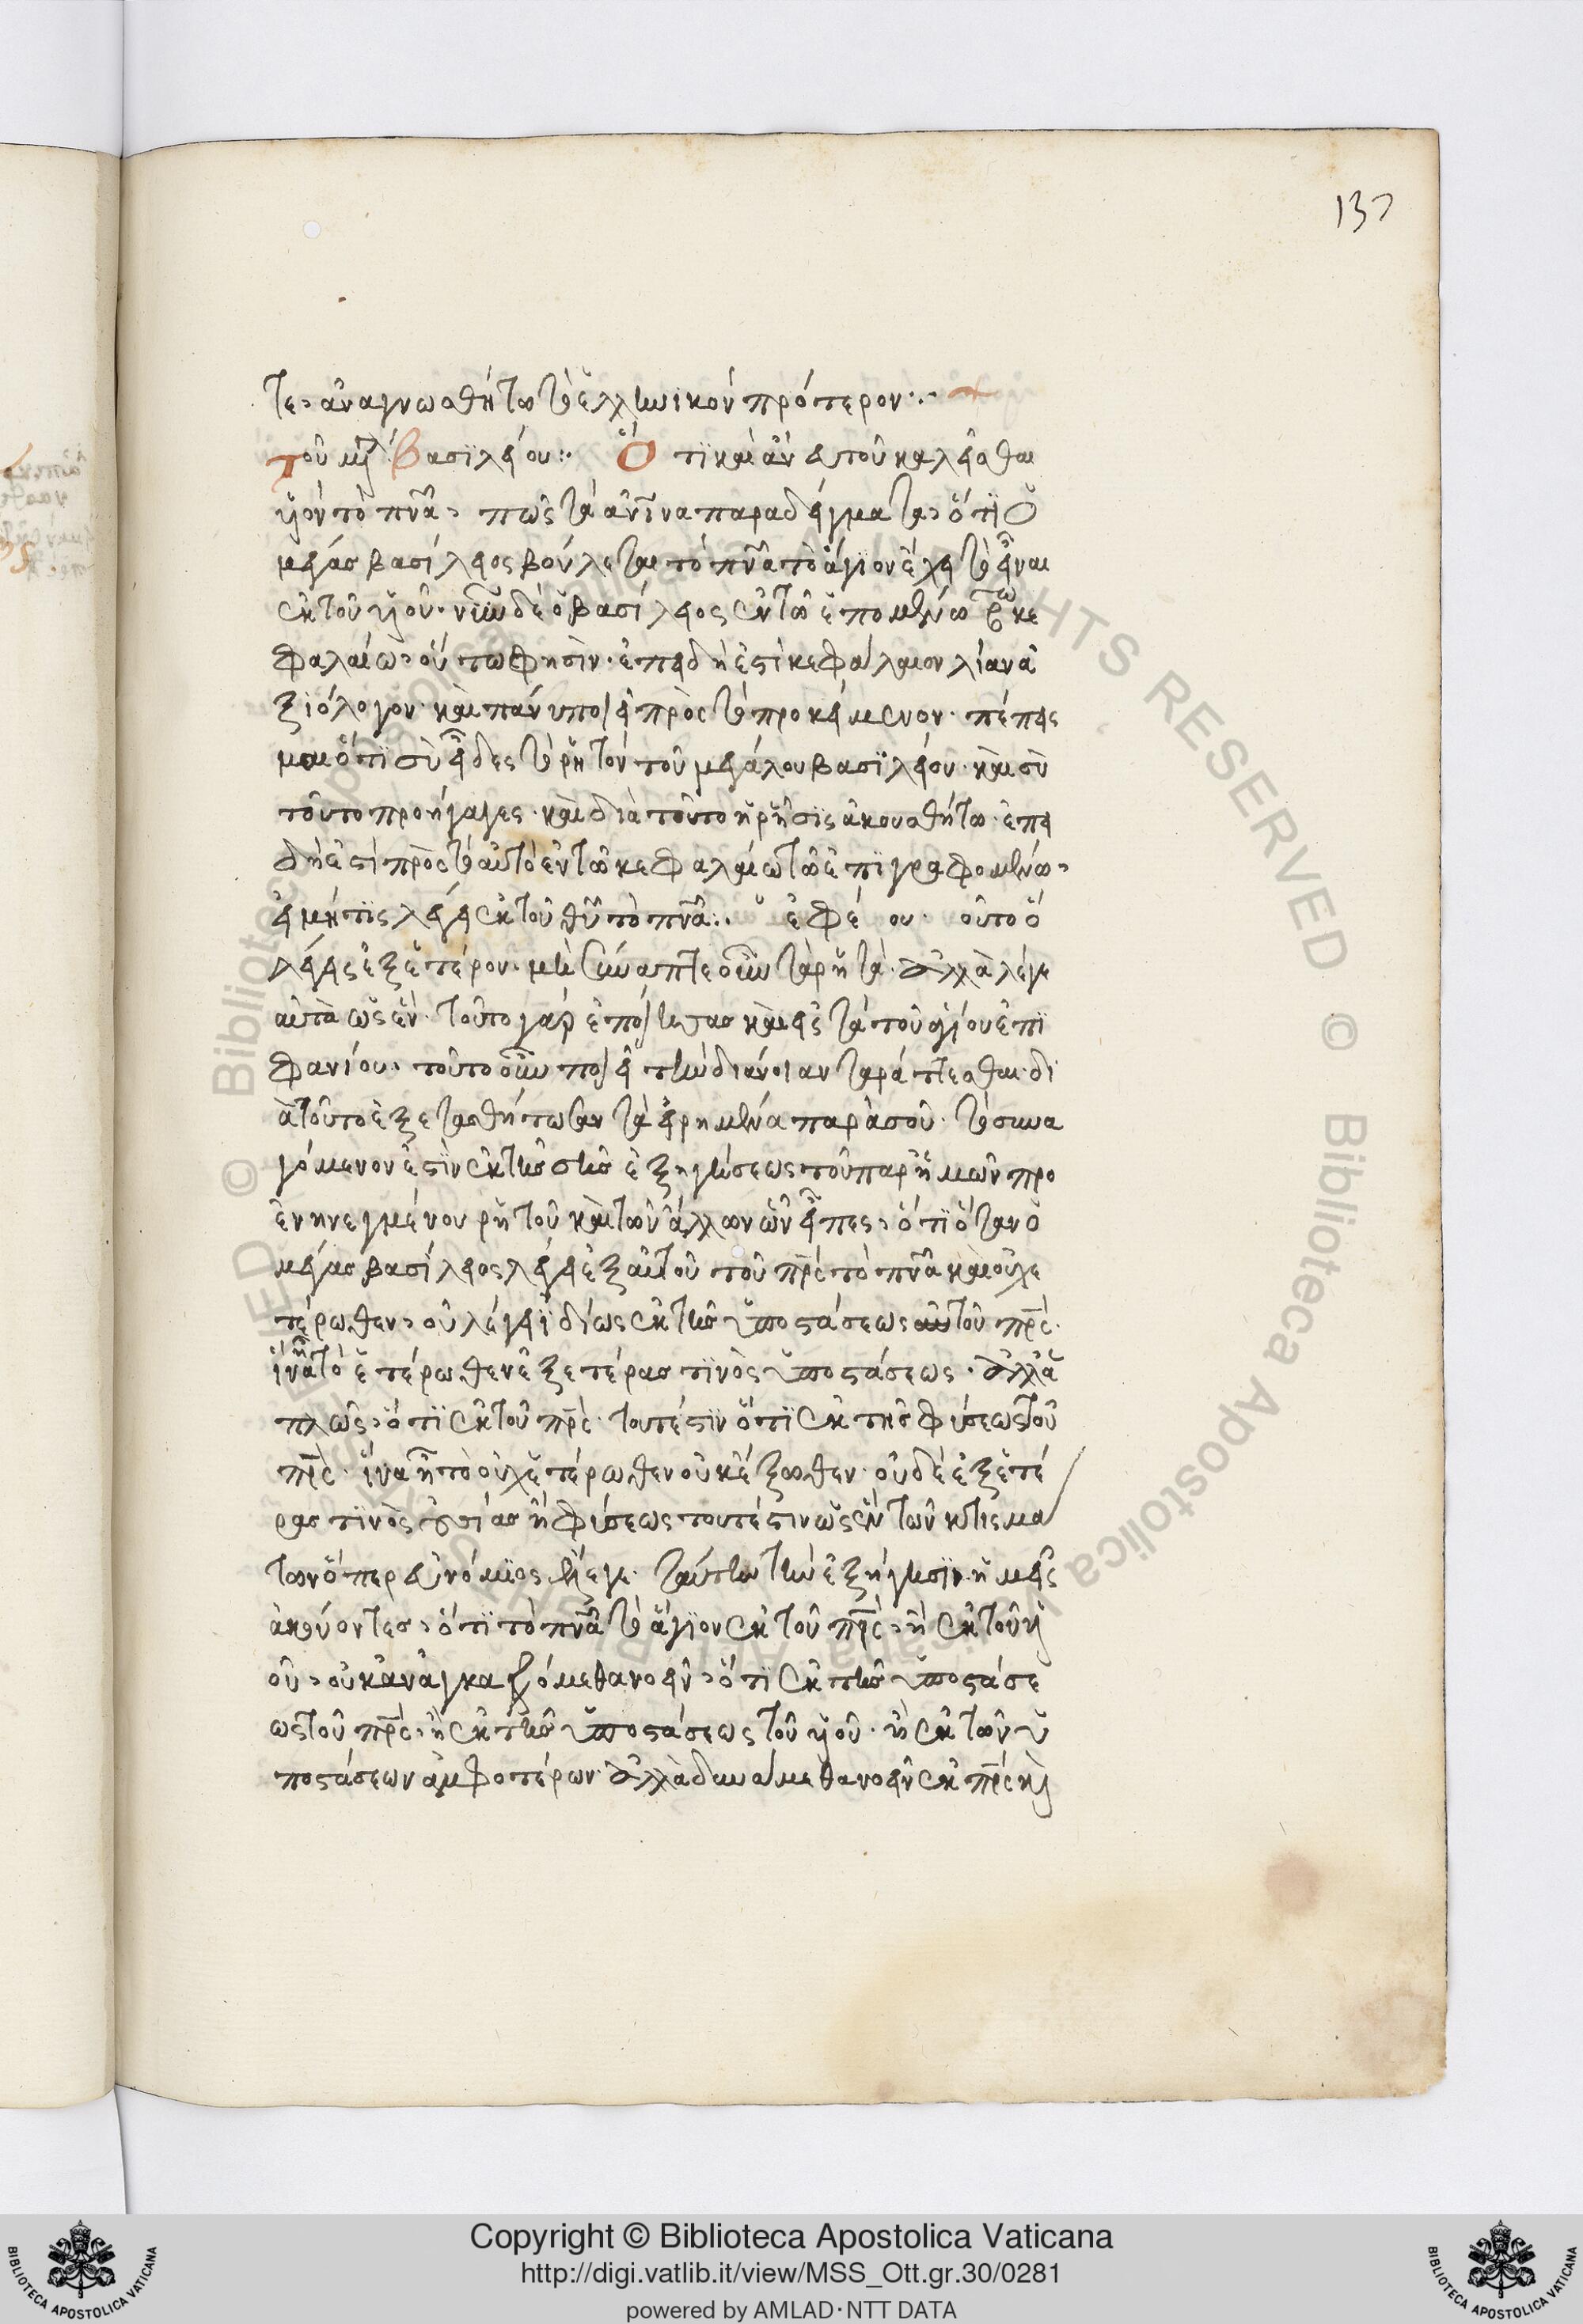 137
τε, ἀναγνωσθήτω τὸ ἑλληνικὸν πρότερον:·
τοῦ μγλ Βασϊλείου:· Ὅτϊ καὶ ἀντὶ τοῦ καλεῖσθαι
υἱὸν τὸ πνα, πῶς τὰ ἀντινα παραδείγματα, ὅτϊ ὁ
μέγας βασίλειος βούλεται τὸ πνα τὸ ἅγιον ἔχει τὸ εἶναι
ἐκ τοῦ υἱοῦ· νῦν δὲ ὁ βασίλειος ἐν τῶ ἑπομένω κε
φαλαίω, οὕτω φησὶν· ἐπειδὴ ἐστὶ κεφάλαιον λίαν ἀ
ξιόλογον· καὶ πάνυ ποιεῖ πρὸς τὸ προκείμενον· πέπεις
μαι ὅτϊ σὺ εἶδες τὸ ῥητὸν τοῦ μεγάλου βασϊλείου· καὶ σὺ
τοῦτο προήγαγες· καὶ διὰ τοῦτο ἡ ῥῆσϊς ἀκουσθήτω· ἐπει
δὴ ἐστὶ πρὸς τὸ αὐτὸ ἐν τῶ κεφαλαίω τῶ ἐπϊγραφομένω,
εἰ μή τϊς λέγει ἐκ τοῦ θῦ τὸ πνα:· ἐφέ ου· οὗτο ὃ
λέγεις ἐξ ἑτέρου· μὴ σύναπτε οὖν τὰ ῥητά· ἀλλὰ λέγε
αὐτὰ ὡς ἕν· τοῦτο γὰρ ἐποίησας καὶ εἰς τὰ τοῦ ἁγίου ἐπϊ
φανίου· τοῦτο οὖν ποιεῖ τὴν διάνοιαν ταράττεσθαι· δι
ὰ τοῦτο ἐξετασθήτωσαν τὰ εἰρημένα παρὰ σοῦ· τὸ συνα
γόμενον ἐστὶν ἐκ τῆς σῆς ἐξηγήσεως τοῦ παρ' ἡμῶν προ
ενηνεγμένου ῥητοῦ καὶ τῶν ἄλλων ὧν εἶπες, ὅτϊ ὅταν ὁ
μέγας βασίλειος λέγει ἐξ αὐτοῦ τοῦ πρς τὸ πνα καὶ οὐχ ἑ
τέρωθεν, οὐ λέγει ϊδίως ἐκ τῆς ὑποστάσεως αὐτοῦ πρς·
ἵνα ἦ τὸ ἑτέρωθεν ἐξ ἑτέρας τϊνὸς ὑποστάσεως· ἀλλ' ἁ
πλῶς, ὅτϊ ἐκ τοῦ πρς· τουτέστϊν ὅτϊ ἐκ τῆς φύσεως τοῦ
πρς· ἵνα ἦ τὸ οὐχ ἑτέρωθεν οὐκ ἔξωθεν· οὐδὲ ἐξ ἑτέ
ρας τϊνὸς οὐσίας ἢ φύσεως τουτέστιν ὡς ἓν τῶν κτισμά
των ὅπερ εὐνόμϊος λέγει· ταύτην τὴν ἐξήγησϊν ἡμεῖς
ἀκούοντες, ὅτϊ τὸ πνα τὸ ἅγιον ἐκ τοῦ πρς, ἢ ἐκ τοῦ υἱ
οῦ, οὐκ ἀναγκαζόμεθα νοεῖν, ὅτϊ ἐκ τῆς ὑποστάσε
ως τοῦ πρς, ἢ ἐκ τῆς ὑποστάσεως τοῦ υἱοῦ· ἢ ἐκ τῶν ὑ
ποστάσεων ἀμφοτέρων· ἀλλὰ δυνάμεθα νοεῖν ἐκ πρς καὶ
Copyright © Biblioteca Apostolica Vaticana
http://digi.vatlib.it/view/MSS_Ott.gr.30/0281
powered by AMLAD·NTT DATA